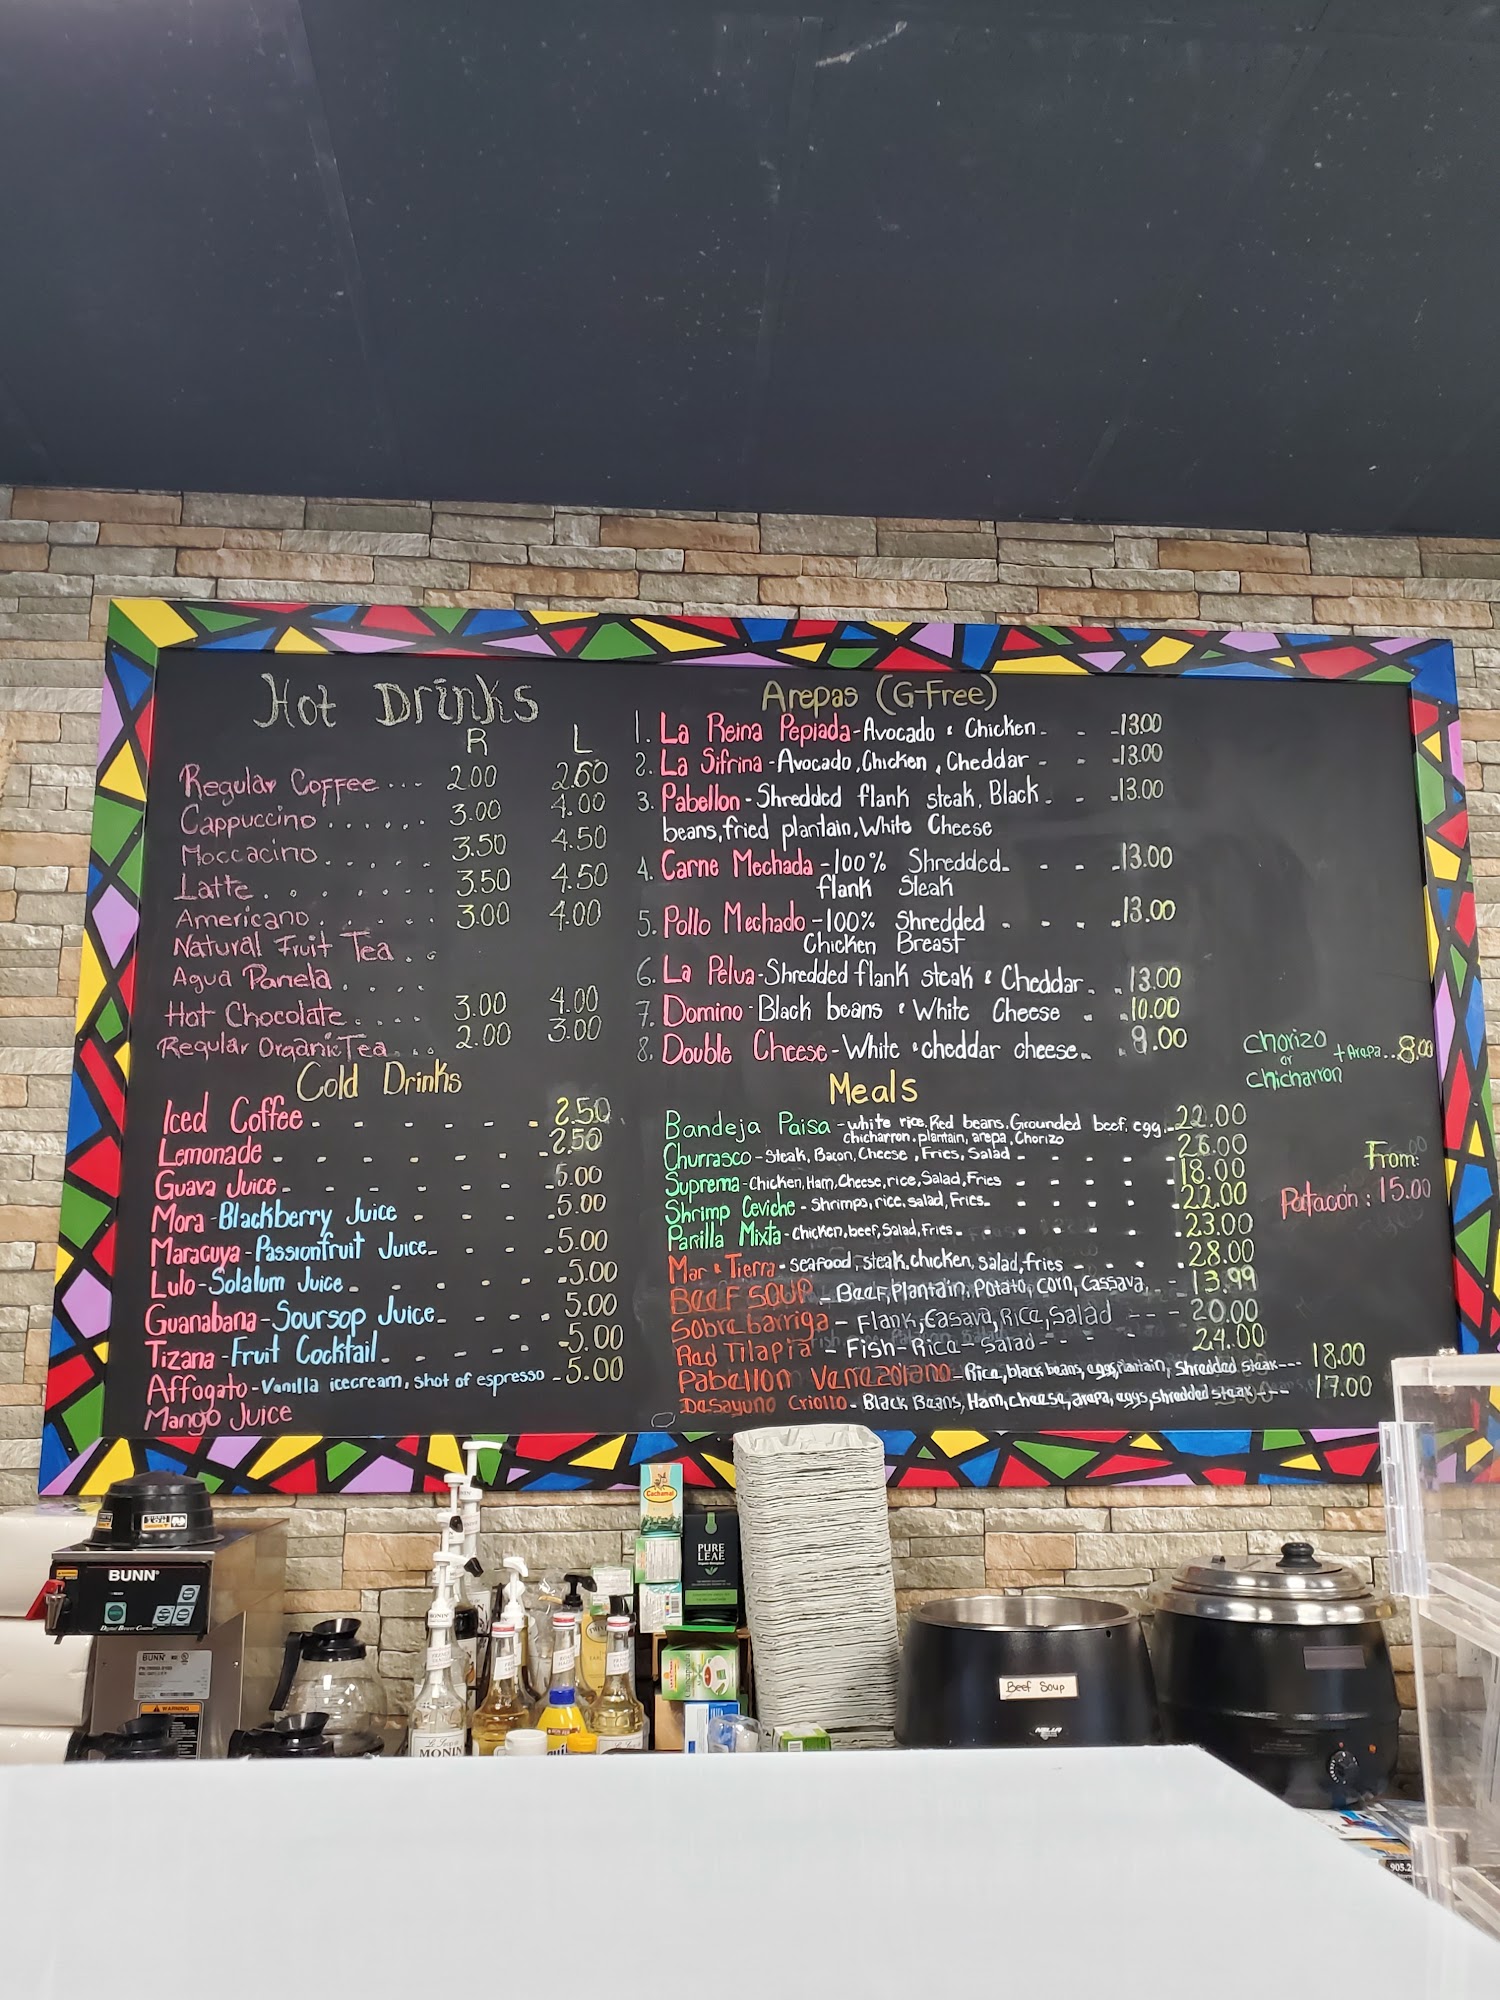 Hot Drinks
R L
Regular Coffee ... 2.00 2.60
Cappuccino ...... 3.00 4.00
Moccacino ..... 3.50 4.50
Latte ....... 3.50 4.50
Americano ..... 3.00 4.00
Natural Fruit Tea ..
Agua Panela ....
Hot Chocolate .... 3.00 4.00
Regular Organic Tea ... 2.00 3.00
Cold Drinks
Iced Coffee - - - - - - 2.50
Lemonade - - - - - - - 2.50
Guava Juice - - - - - - 5.00
Mora - Blackberry Juice - - - - 5.00
Maracuya - Passionfruit Juice - - - - 5.00
Lulo - Solalum Juice - - - - - - 5.00
Guanabana - Soursop Juice - - - - 5.00
Tizana - Fruit Cocktail - - - - - 5.00
Affogato - Vanilla icecream, shot of espresso - 5.00
Mango Juice
Arepas (G-Free)
1. La Reina Pepiada - Avocado & Chicken - - - 13.00
2. La Sifrina - Avocado, Chicken, Cheddar - - - 13.00
3. Pabellon - Shredded flank steak, Black - - - 13.00
beans, fried plantain, White Cheese
4. Carne Mechada - 100% Shredded - - - 13.00
flank Steak
5. Pollo Mechado - 100% Shredded - - - - 13.00
Chicken Breast
6. La Pelua - Shredded flank steak & Cheddar - - 13.00
7. Domino - Black beans & White Cheese - - 10.00
8. Double Cheese - White & cheddar cheese - - 9.00
Chorizo
or + Arepa .. 8.00
Chicharron
Meals
Bandeja Paisa - white rice, Red beans, Grounded beef, egg, - 22.00
chicharron, plantain, arepa, Chorizo
Churrasco - Steak, Bacon, Cheese, Fries, Salad - - - - - 26.00
Suprema - Chicken, Ham, Cheese, rice, Salad, Fries - - - - - 18.00
Shrimp Ceviche - Shrimps, rice, salad, Fries - - - - - 22.00
Parilla Mixta - chicken, beef, Salad, Fries - - - - - 23.00
Mar & Tierra - seafood, steak, chicken, salad, fries - - - - 28.00
BEEF SOUP - Beef, Plantain, Potato, corn, Cassava, - - 13.99
Sobrebarriga - Flank, Casava, Rice, Salad - - - 20.00
Red Tilapia - Fish - Rice - Salad - - - - 24.00
Pabellon Venezolano - Rice, black beans, eggs, plantain, Shredded steak --- 18.00
Desayuno Criollo - Black Beans, Ham, cheese, arepa, eggs, shredded steak --- 17.00
From:
Patacón: 15.00
BUNN
BUNN
WARNING
MONIN
Cachamai
PURE
LEAF
Beef Soup
905.2